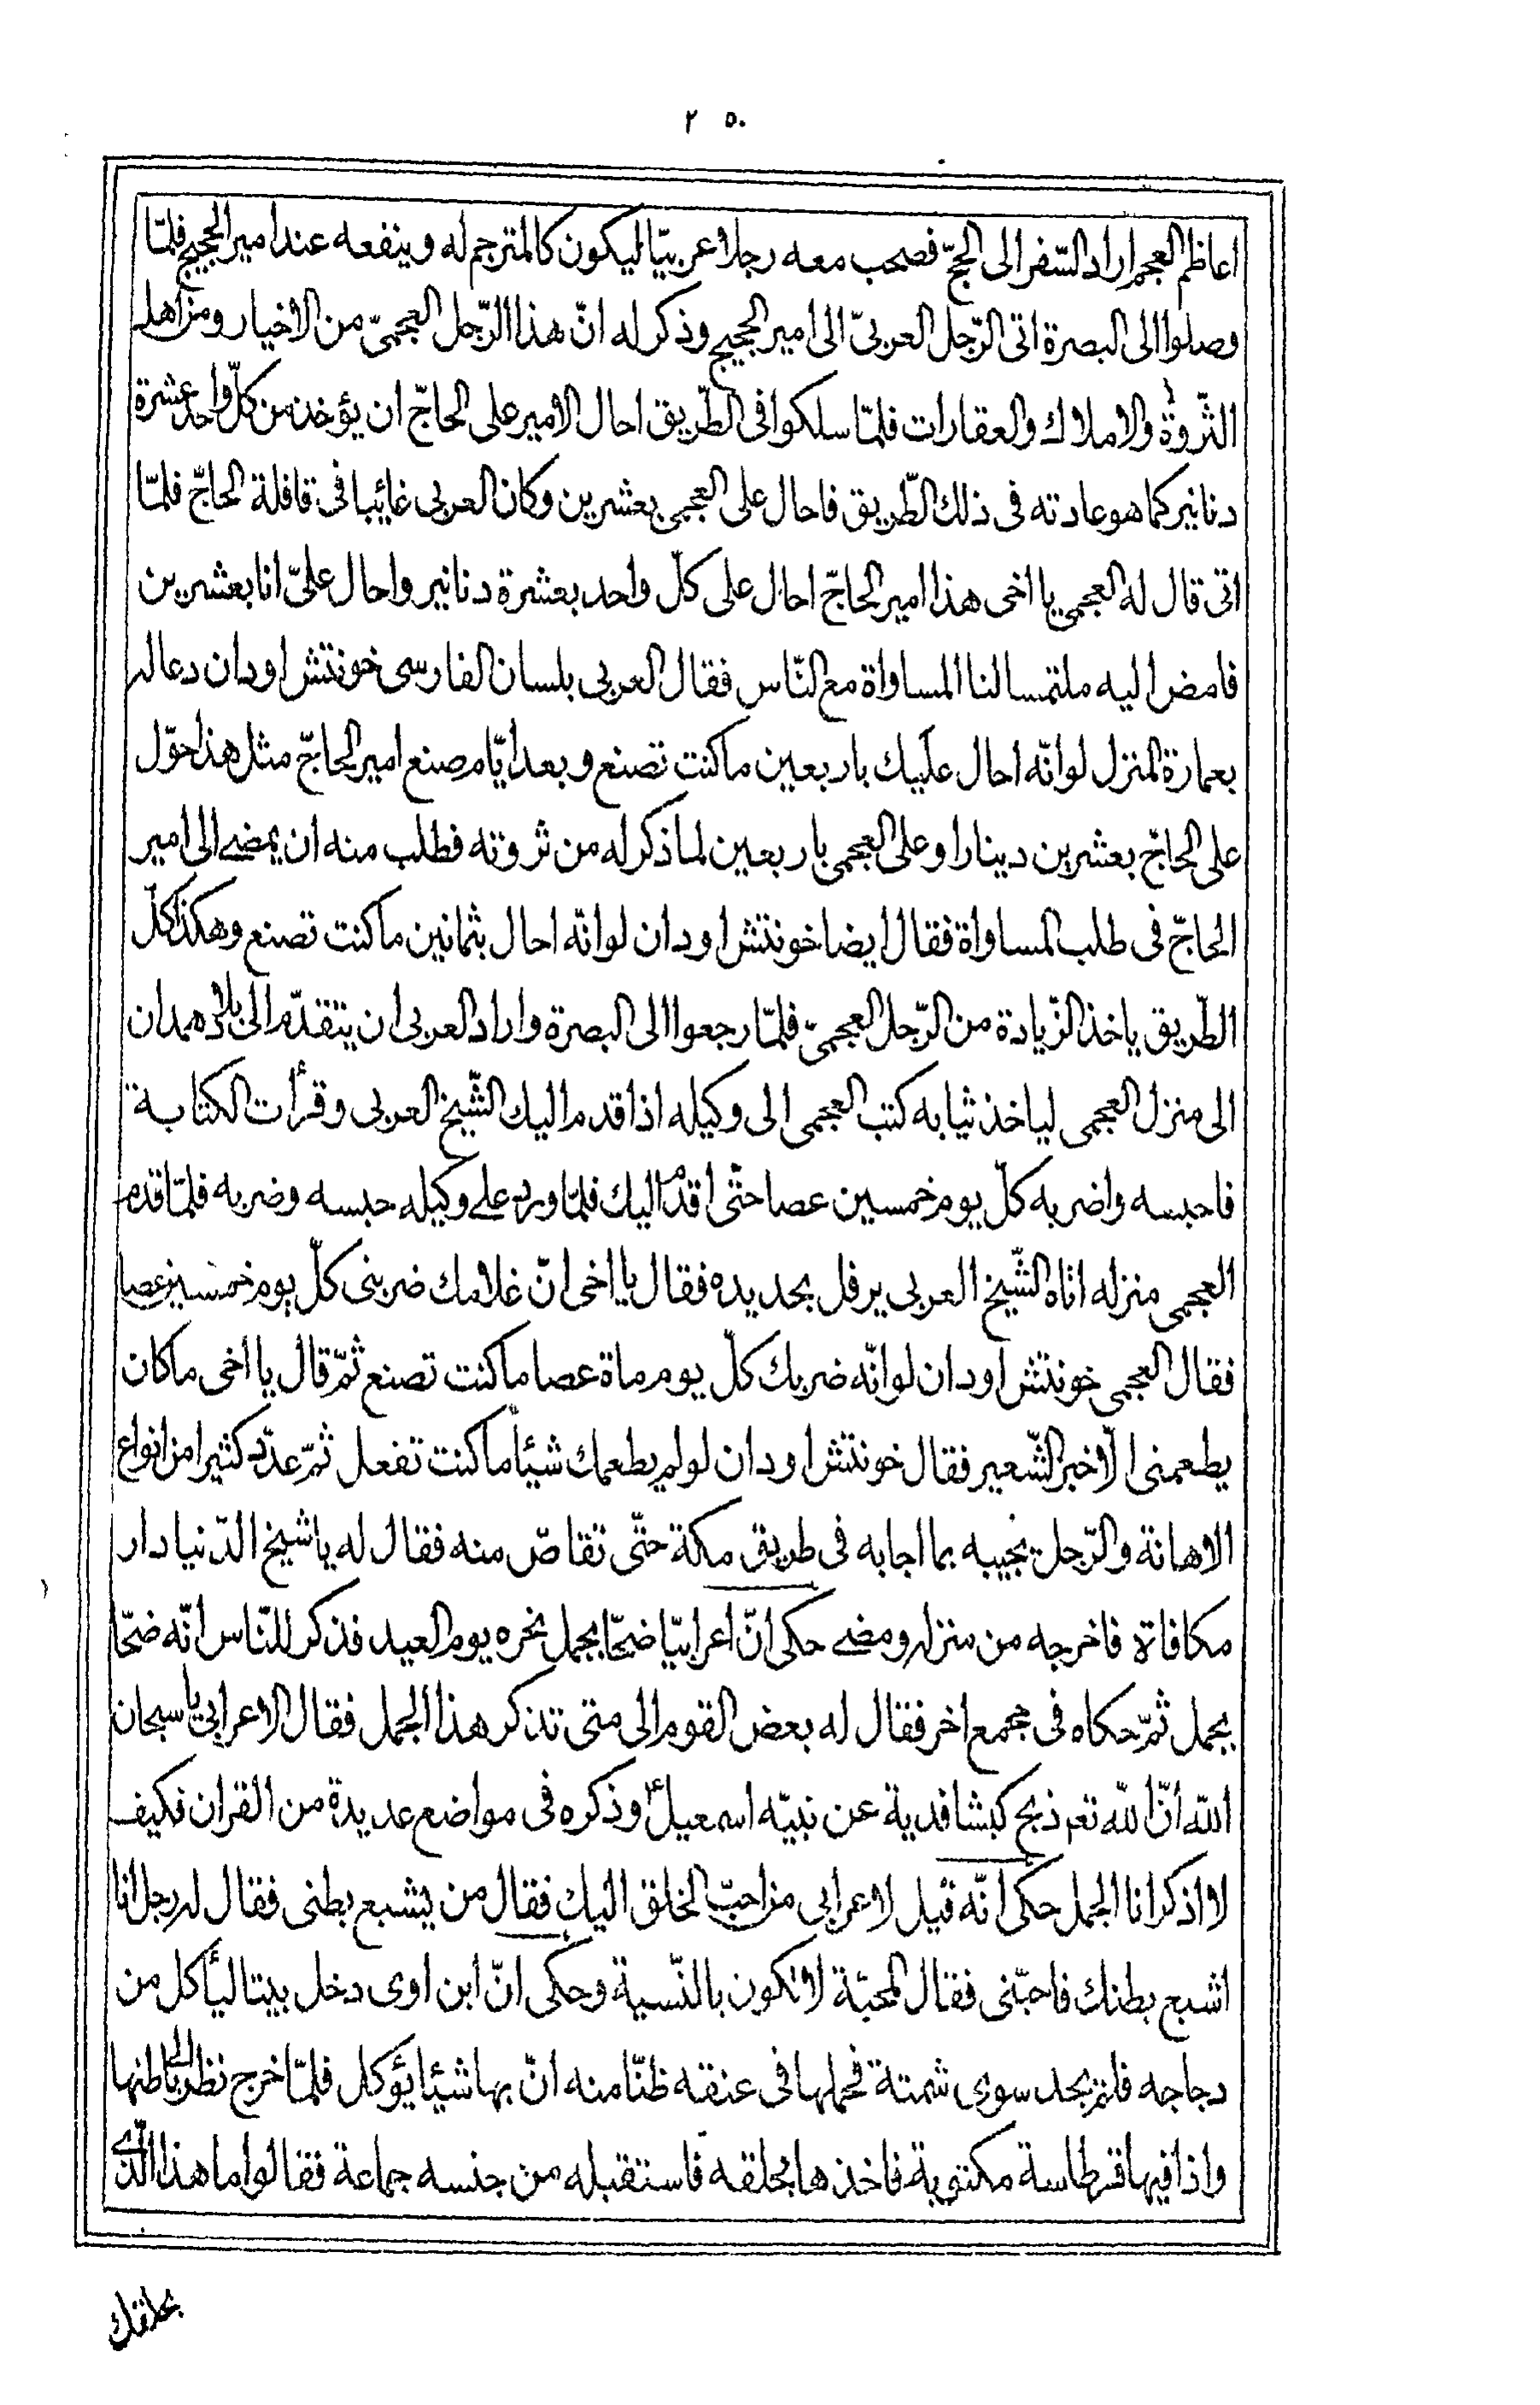 ٢٥٠
اعاظم العجم اراد السّفر الى الحجّ فصحب معه رجلا عربيّا ليكون كالمترجم له وينفعه عند امير الحجيج فلمّا
وصلوا الى البصرة اتى الرّجل العربىّ الى امير الحجيج وذكر له انّ هذا الرّجل العجمىّ من الاخيار ومن اهل
الثّروة والاملاك والعقارات فلمّا سلكوا فى الطّريق احال الامير على الحاجّ ان يؤخذ من كلّ واحد عشرة
دنانير كما هو عادته فى ذلك الطّريق فاحال على العجمى بعشرين وكان العربى غائبا فى قافلة الحاجّ فلمّا
اتى قال له العجمى يا اخى هذا امير الحاجّ احال على كلّ واحد بعشرة دنانير واحال علىّ انا بعشرين
فامض اليه ملتمسا لنا المساواة مع النّاس فقال العربى بلسان الفارسى خونتش اودان دعا له
بعمارة المنزل لو انّه احال عليك باربعين ما كنت تصنع وبعد ايّام صنع امير الحاجّ مثل هذا حوّل
على الحاجّ بعشرين دينارا وعلى العجمى باربعين لما ذكر له من ثروته فطلب منه ان يمضى الى امير
الحاجّ فى طلب المساواة فقال ايضا خونتش اودان لو انّه احال بثمانين ما كنت تصنع وهكذا كلّ
الطّريق ياخذ الزّيادة من الرّجل العجمىّ فلمّا رجعوا الى البصرة واراد العربى ان يتقدّم الى بلاد همدان
الى منزل العجمى لياخذ ثيابه كتب العجمى الى وكيله اذا قدم اليك الشّيخ العربى وقرأت الكتابة
فاحبسه واضربه كلّ يوم خمسين عصا حتّى اقدم اليك فلمّا ورد على وكيله حبسه وضربه فلمّا قدم
العجمى منزله اتاه الشّيخ العربى يرفل بحديده فقال يا اخى انّ غلامك ضربنى كلّ يوم خمسين عصا
فقال العجمى خونتش اودان لو انّه ضربك كلّ يوم ماة عصا ما كنت تصنع ثمّ قال يا اخى ما كان
يطعمنى الّا خبز الشّعير فقال خونتش اودان لو لم يطعمك شيئا ما كنت تفعل ثمّ عدّد كثيرا من انواع
الاهانة والرّجل يجيبه بما اجابه فى طريق مكة حتّى تقاصّ منه فقال له يا شيخ الدّنيا دار
مكافاة فاخرجه من منزله ومضى حكى انّ اعرابيّا ضحّا بجمل نحره يوم العيد فذكر للنّاس انّه ضحّا
بجمل ثمّ حكاه فى مجمع اخر فقال له بعض القوم الى متى تذكر هذا الجمل فقال الاعرابى يا سبحان
اللّه انّ اللّه تعم ذبح كبشا فدية عن نبيّه اسمعيل وذكره فى مواضع عديدة من القران فكيف
لا اذكر انا الجمل حكى انّه قيل لاعرابى من احبّ الخلق اليك فقال من يشبع بطنى فقال له رجل انا
اشبع بطنك فاحبّنى فقال المحبّة لا تكون بالنّسية وحكى انّ ابن اوى دخل بيتا ليأكل من
دجاجه فلم يجد سوى شمتة فحملها فى عنقه ظنّا منه انّ بها شيئا يؤكل فلمّا خرج نظر الى باطنها
واذا فيها قرطاسة مكتوبة فاخذها بحلقه فاستقبله من جنسه جماعة فقالوا ما هذا الّذى
بحلقك